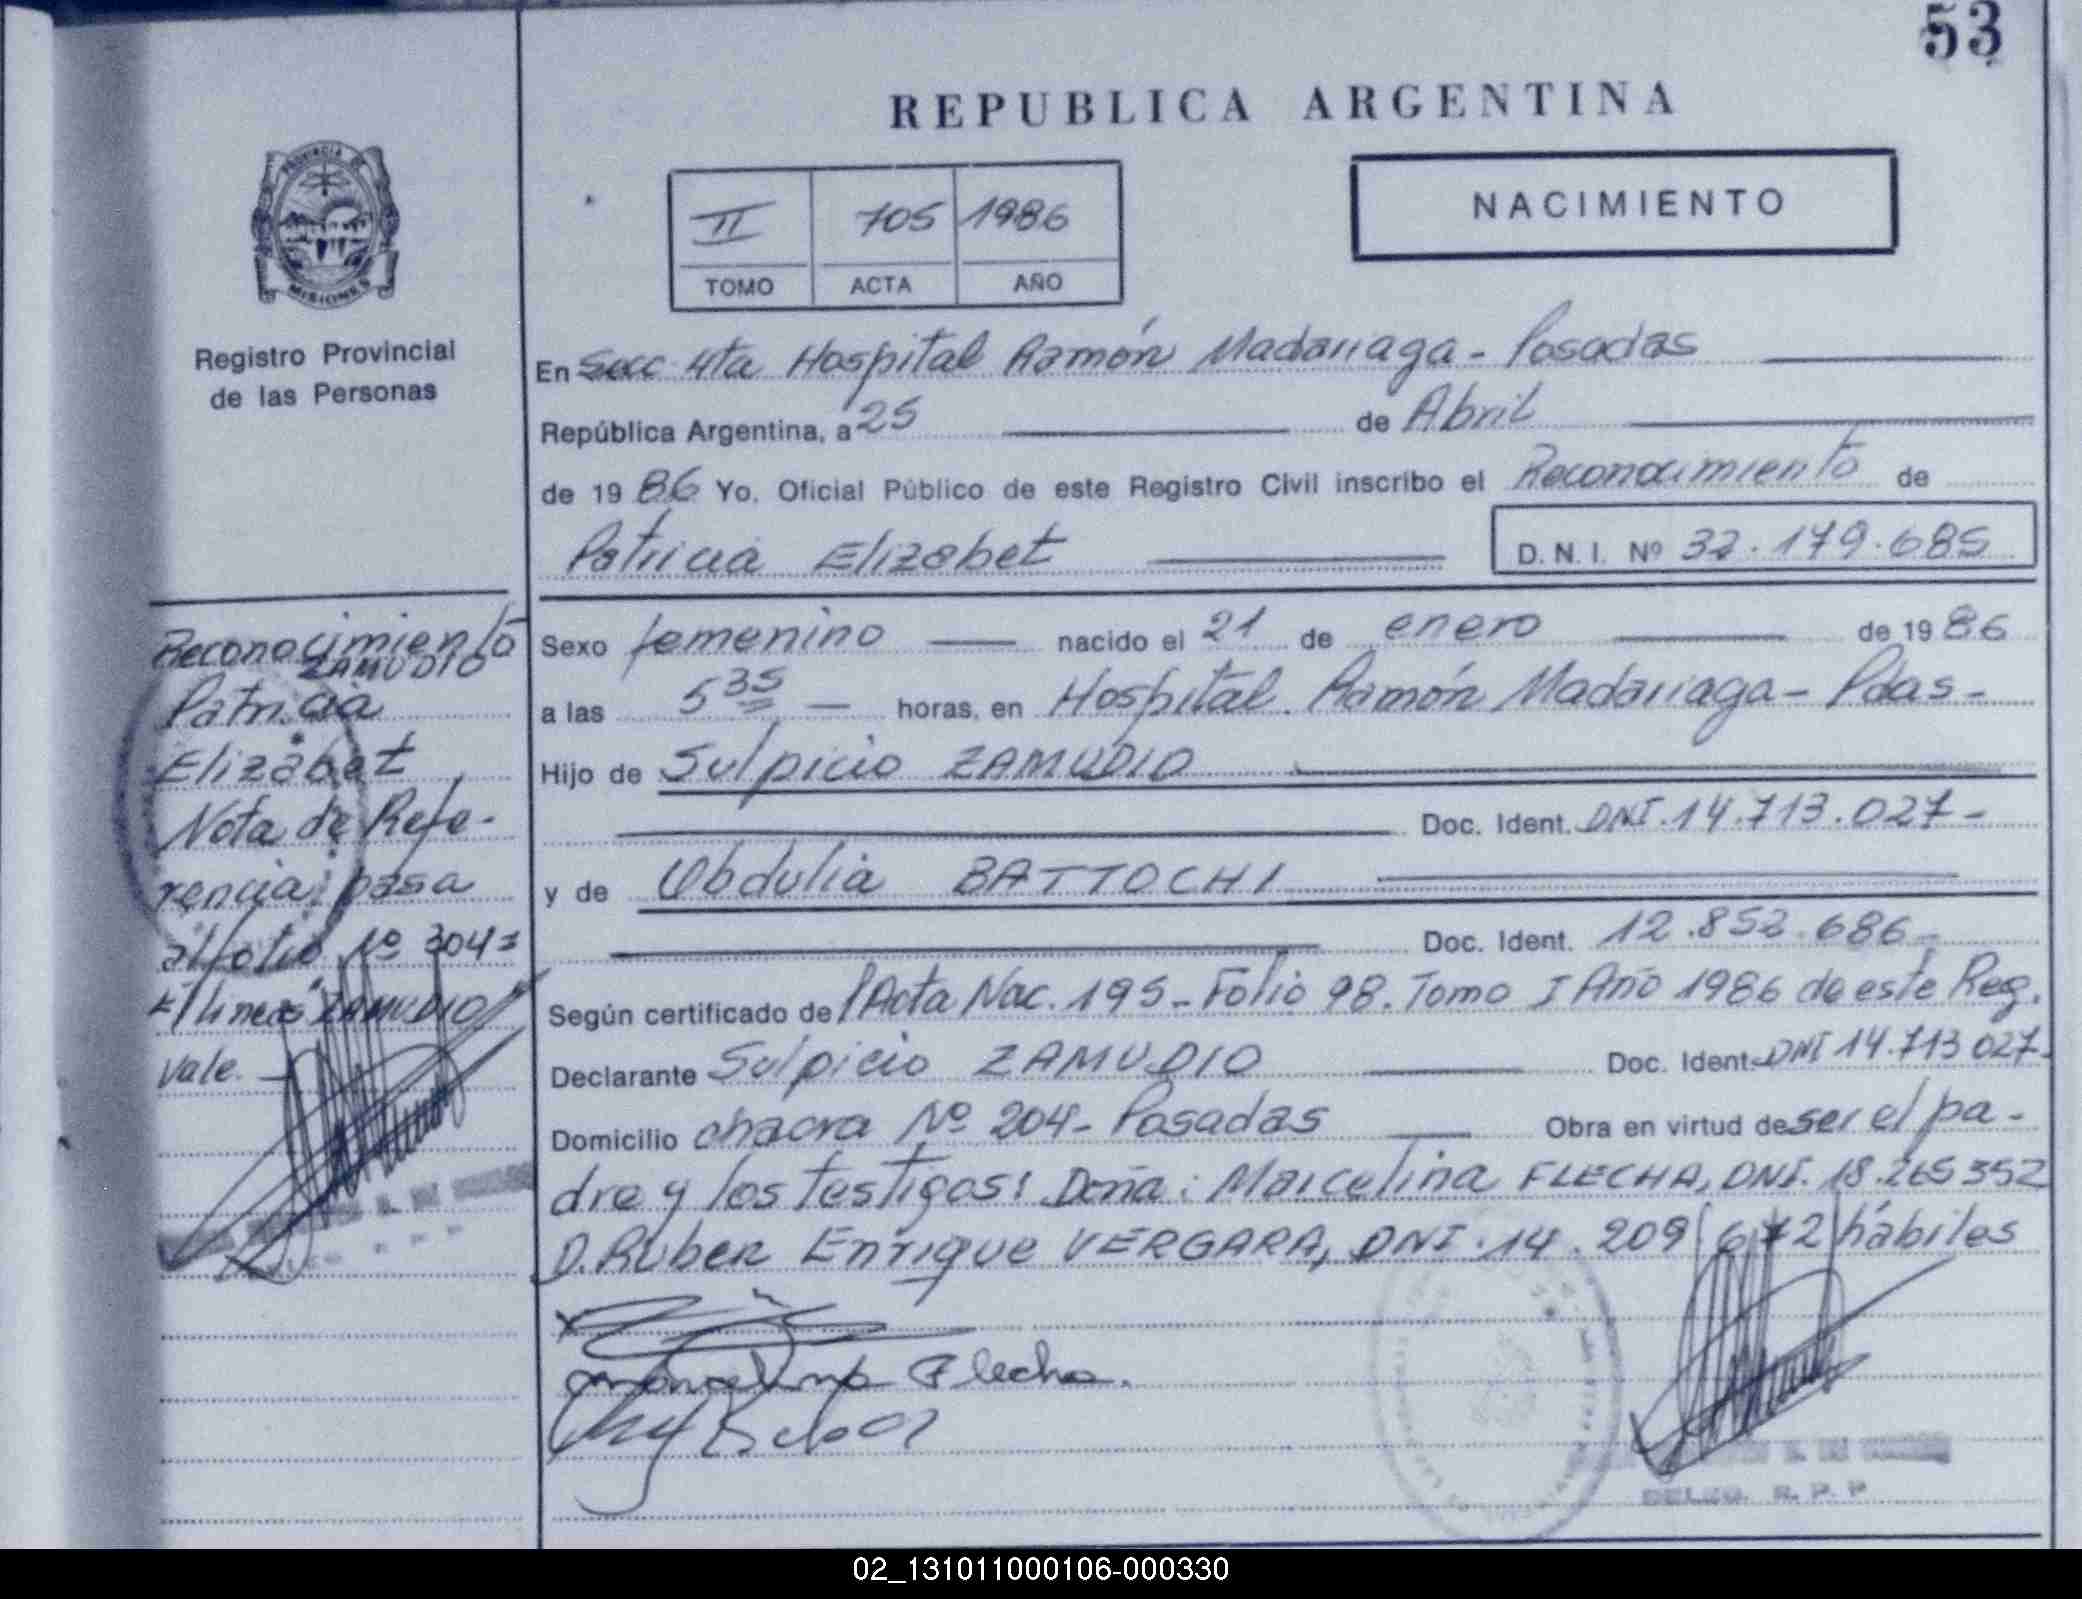 53
REPUBLICA ARGENTINA
PROVINCIA DE
MISIONES
Registro Provincial
de las Personas
II 705 1986
TOMO ACTA AÑO
NACIMIENTO
En Secc 4ta Hospital Ramón Madariaga - Posadas
República Argentina, a 25 de Abril
de 1986 Yo, Oficial Público de este Registro Civil inscribo el Reconocimiento de
Patricia Elizabet D.N.I. Nº 32.179.685
Reconocimiento
ZAMUDIO
Patricia
Elizabet
Nota de Refe-
rencia: pasa
al folio Nº 304=
E/lineas "ZAMUDIO"
Vale.
Sexo femenino nacido el 21 de enero de 1986
a las 5 35 horas, en Hospital Ramón Madariaga - Pdas -
Hijo de Sulpicio ZAMUDIO
Doc. Ident. DNI. 14.713.027-
y de Obdulia BATTOCHI
Doc. Ident. 12.852.686-
Según certificado de /Acta Nac. 195 - Folio 98. Tomo I Año 1986 de este Reg.
Declarante Sulpicio ZAMUDIO Doc. Ident. DNI 14.713 027-
Domicilio chacra Nº 204 - Posadas Obra en virtud de ser el pa-
dre y los testigos: Doña: Marcelina FLECHA, DNI. 18.265 352
D. Ruben Enrique VERGARA, DNI. 14.209 672 hábiles
Marcelina Flecha.
DELEG. R. P. P
02_131011000106-000330